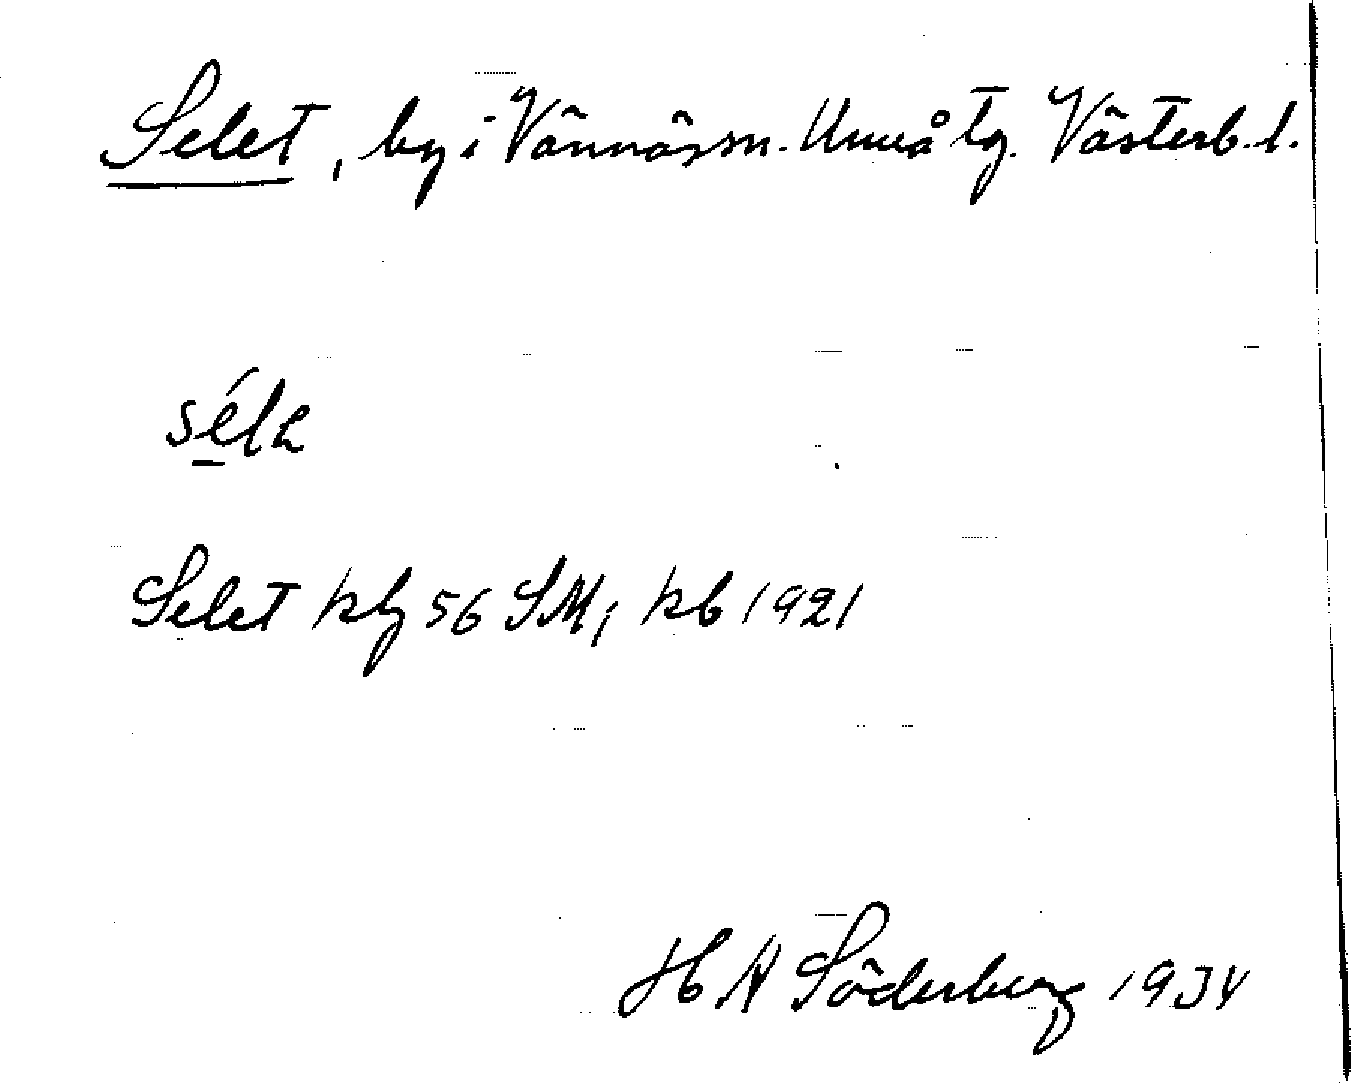 Selet, by i Vännäs sn. Umeå tg. Västerb. l.
séla
Selet kbg 56 SM; kb 1921
H A Söderberg 1934